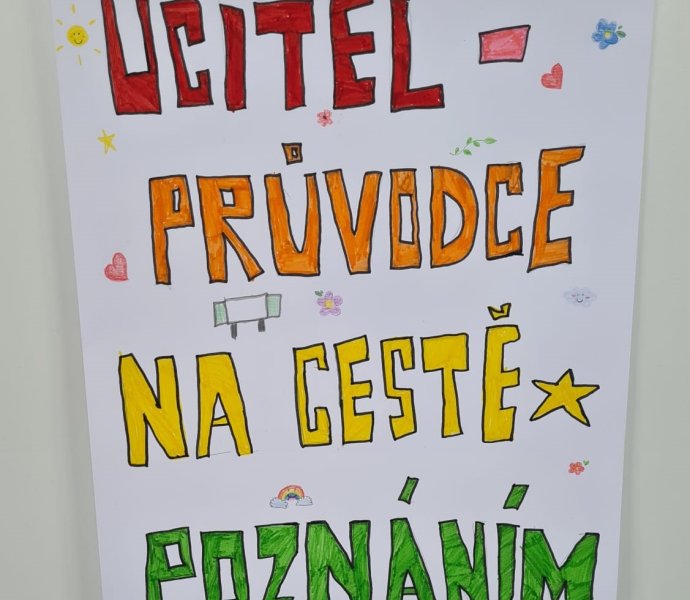 UCITEL -
PRŮVODCE
NA CESTĚ
POZNÁNÍM